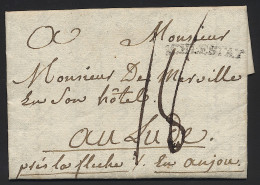 a Monsieur
Monsieur De Merville
En Son hôtel
au Lude.
près la fleche En anjou.
18